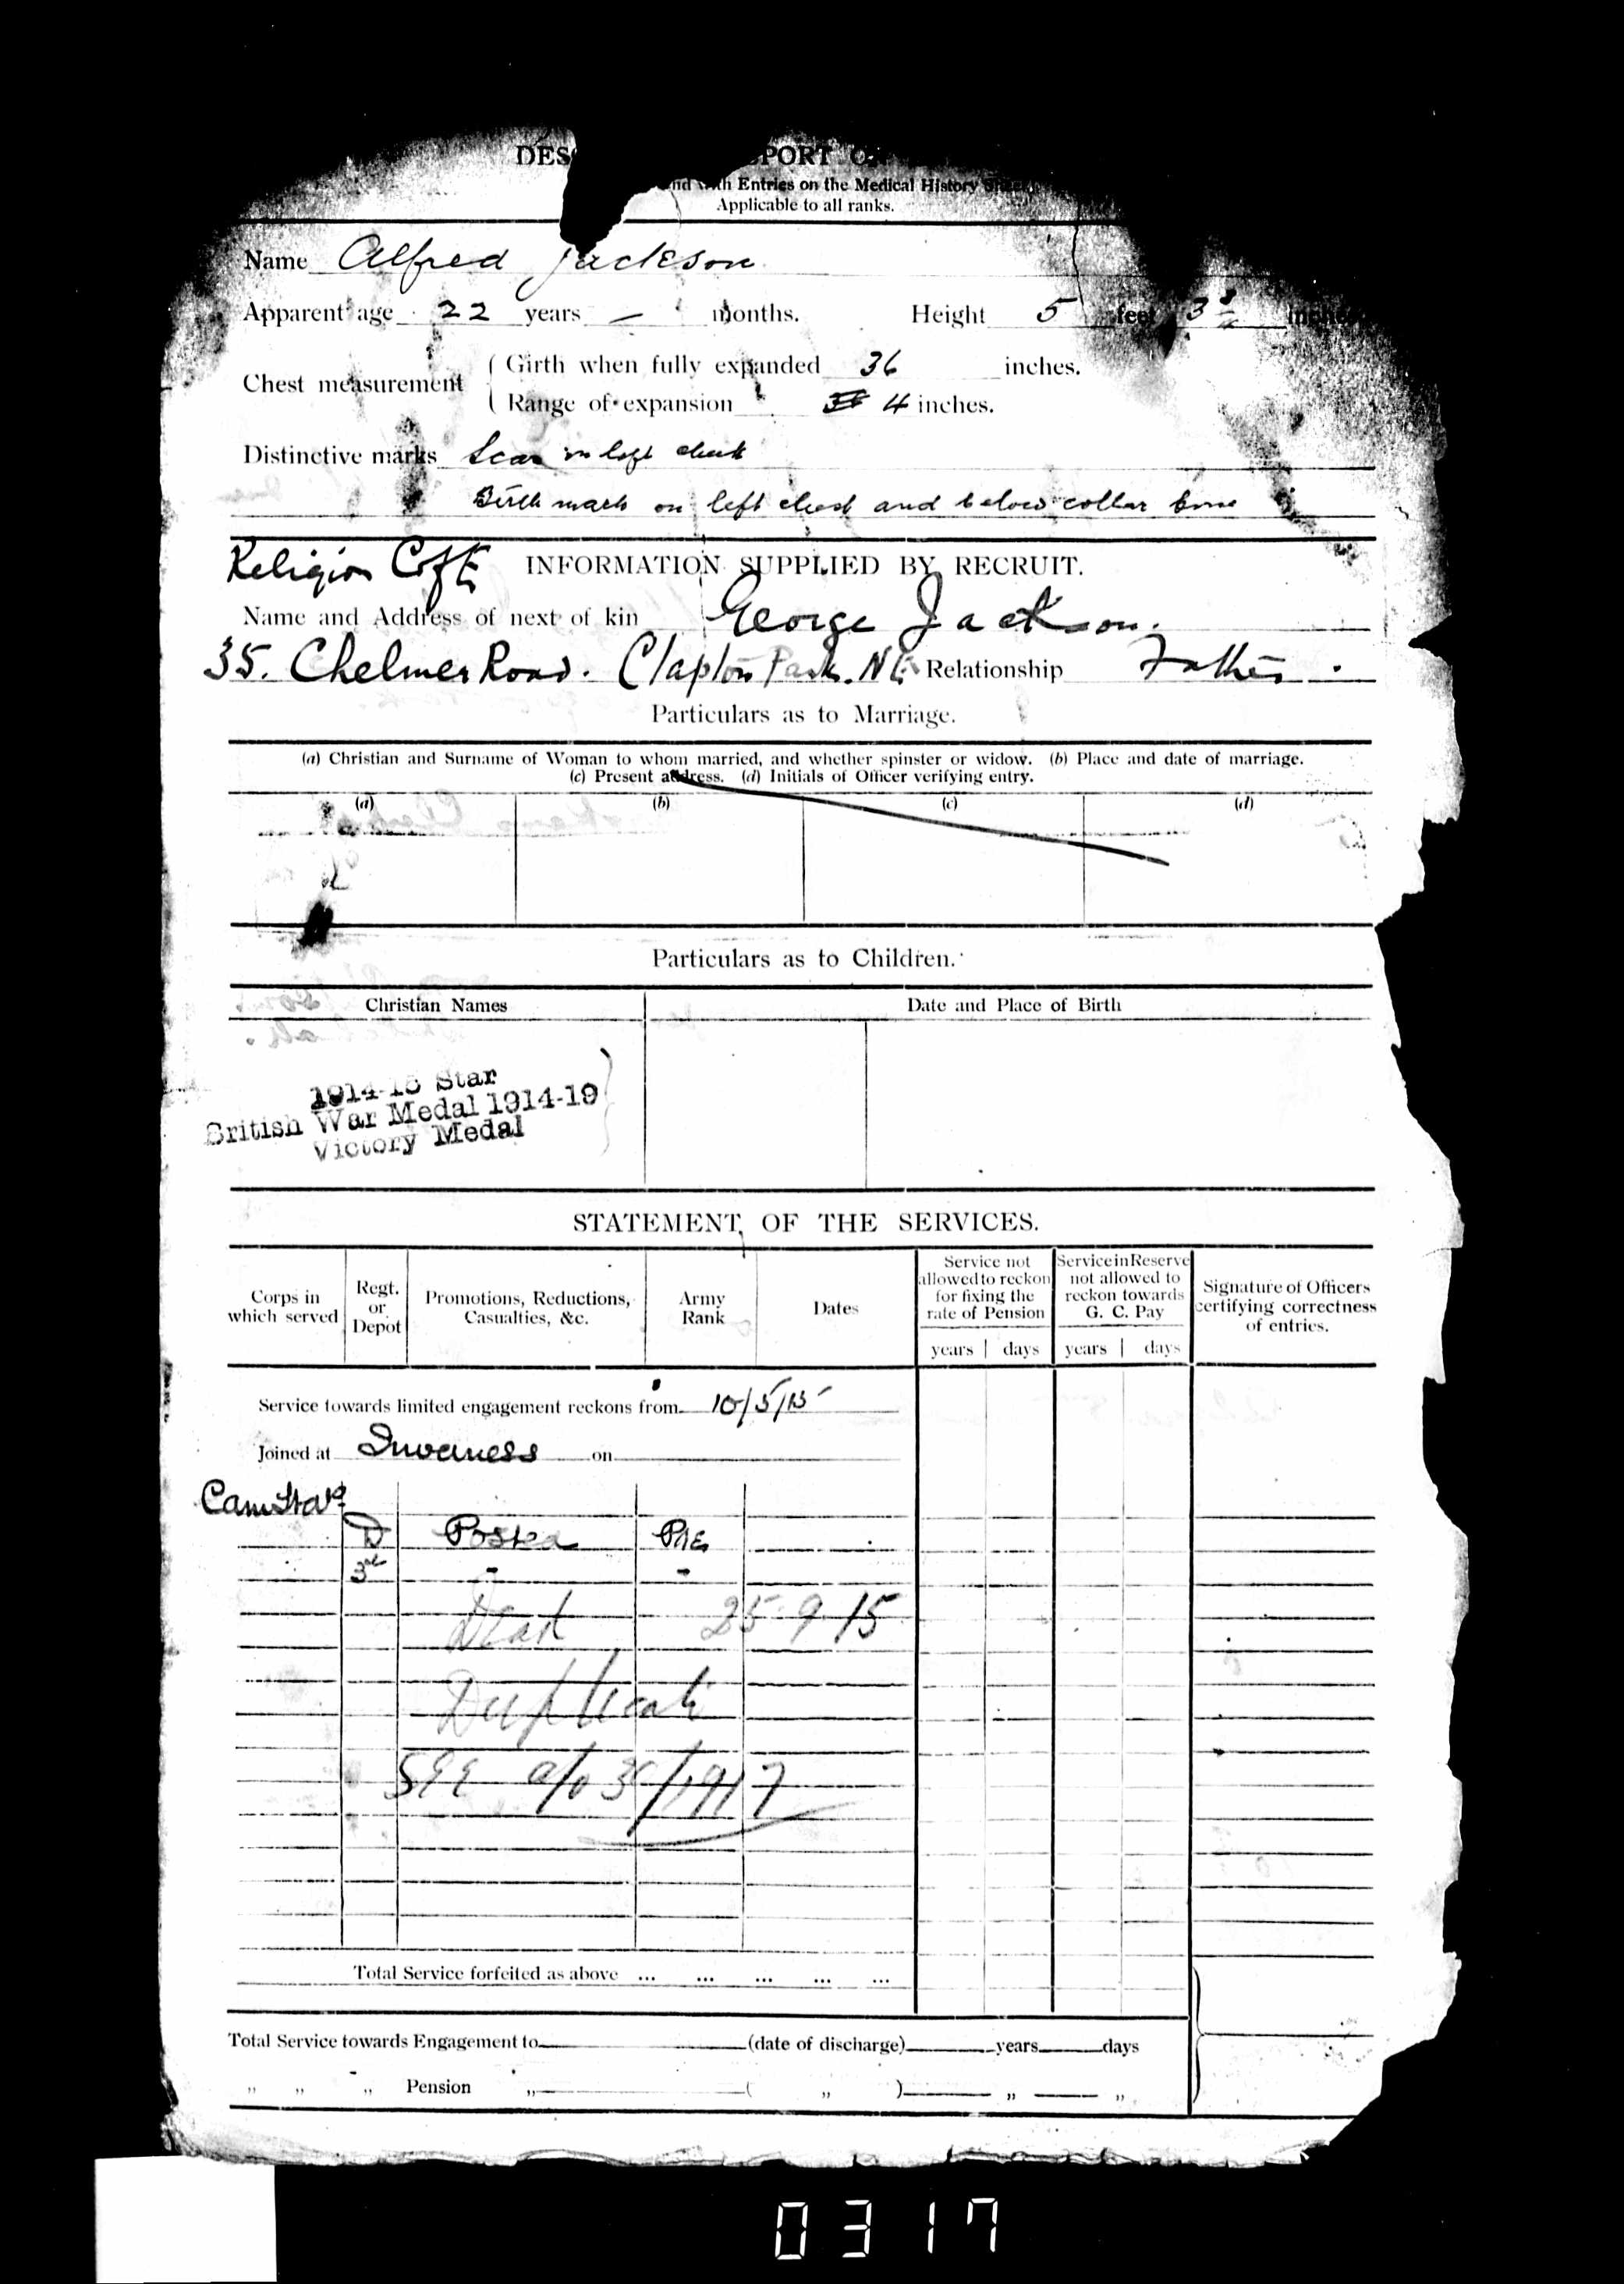 DES PORT O
nd with Entries on the Medical History
Applicable to all ranks.
Name Alfred Jackson
Apparent age 22 years — months. Height 5 feet 3 inches
Chest measurement { Girth when fully expanded 36 inches.
Range of expansion 4 inches.
Distinctive marks Scar on left cheek
Birth mark on left chest and below collar bone
Religion C of E INFORMATION SUPPLIED BY RECRUIT.
Name and Address of next of kin George Jackson.
35. Chelmer Road. Clapton Park. NE Relationship Father.
Particulars as to Marriage.
(a) Christian and Surname of Woman to whom married, and whether spinster or widow. (b) Place and date of marriage.
(c) Present address. (d) Initials of Officer verifying entry.
(a) (b) (c) (d)
Particulars as to Children.
Christian Names Date and Place of Birth
1914-15 Star
British War Medal 1914-19
Victory Medal
STATEMENT OF THE SERVICES.
Corps in which served
Regt. or Depot
Promotions, Reductions, Casualties, &c.
Army Rank
Dates
Service not allowed to reckon for fixing the rate of Pension
Service in Reserve not allowed to reckon towards G. C. Pay
Signature of Officers certifying correctness of entries.
years days years days
Service towards limited engagement reckons from 10/5/15
Joined at Inverness on
D Posted Pte
3rd " "
Dead 25 9 15
Duplicate
SEE 1917
Total Service forfeited as above ... ... ... ... ...
Total Service towards Engagement to (date of discharge) years days
" " " Pension " ( " ) " "
0317